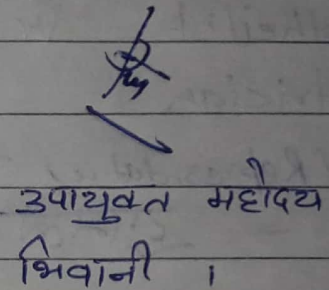 उपायुक्त महोदय
भिवानी ।